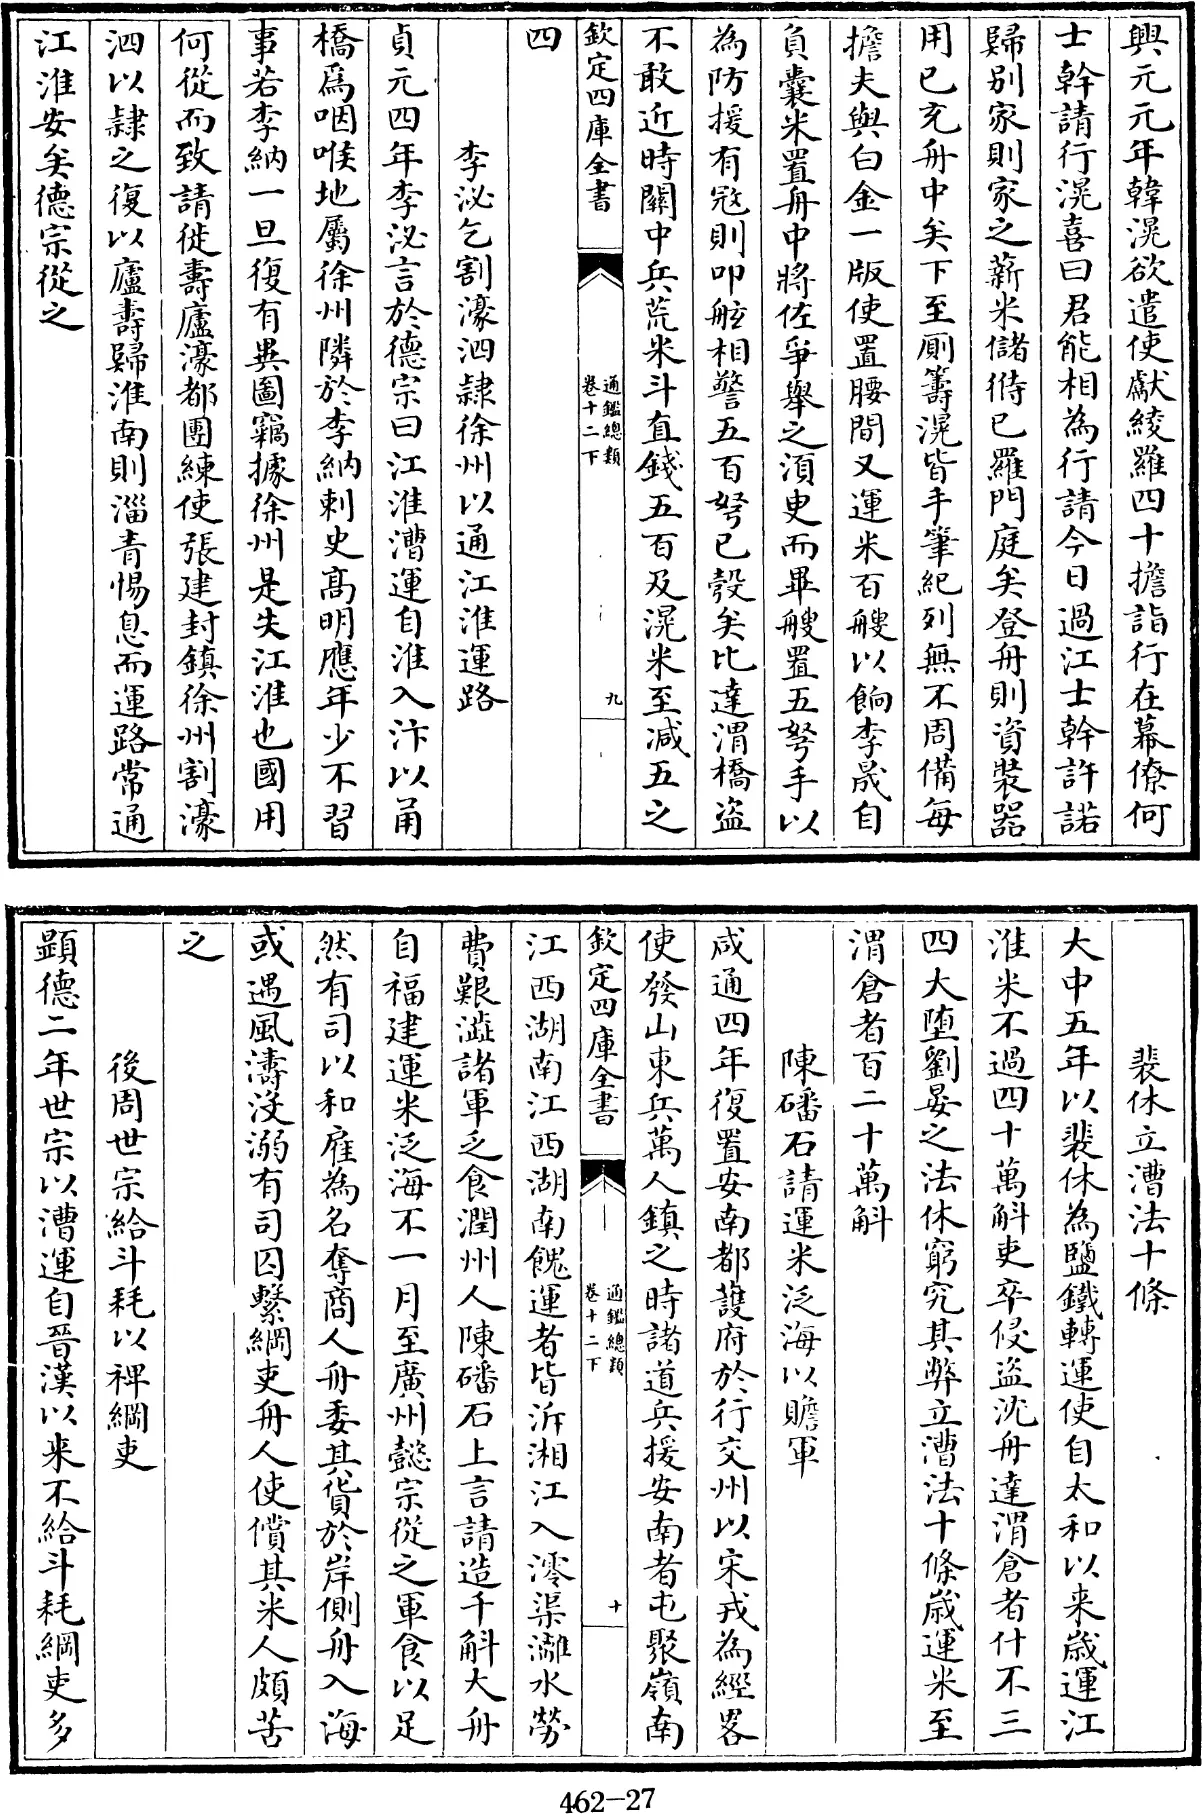 興元元年韓滉欲遣使獻綾羅四十擔詣行在幕僚何
士幹請行滉喜曰君能相為行請今日過江士幹許諾
歸别家則家之薪米儲偫已羅門庭矣登舟則資裝器
用已充舟中矣下至厠籌滉皆手筆紀列無不周備每
擔夫與白金一版使置腰間又運米百艘以餉李晟自
負囊米置舟中將佐爭舉之湏臾而畢艘置五弩手以
為防援有宼則叩舷相警五百弩已彀矣比達渭橋盗
不敢近時關中兵荒米斗直錢五百及滉米至減五之
欽定四庫全書
通鑑總類
卷十二下
九
四
李泌乞割濠泗隷徐州以通江淮運路
貞元四年李泌言於德宗曰江淮漕運自淮入汴以甬
橋爲咽喉地屬徐州隣於李納刺史髙明應年少不習
事若李納一旦復有異圖竊據徐州是失江淮也國用
何從而致請徙壽廬濠都團練使張建封鎮徐州割濠
泗以隷之復以廬壽歸淮南則淄青惕息而運路常通
江淮安矣德宗從之
裴休立漕法十條
大中五年以裴休為鹽鐵轉運使自太和以来歳運江
淮米不過四十萬斛吏卒侵盗沈舟達渭倉者什不三
四大墮劉晏之法休窮究其弊立漕法十條歳運米至
渭倉者百二十萬斛
陳磻石請運米泛海以贍軍
咸通四年復置安南都䕶府於行交州以宋戎為經畧
使發山東兵萬人鎮之時諸道兵援安南者屯聚嶺南
欽定四庫全書
通鑑總類
卷十二下
十
江西湖南江西湖南餽運者皆泝湘江入澪渠灕水勞
費艱澁諸軍乏食潤州人陳磻石上言請造千斛大舟
自福建運米泛海不一月至廣州懿宗從之軍食以足
然有司以和雇為名奪商人舟委其貨於岸側舟入海
或遇風濤没溺有司囚繫綱吏舟人使償其米人頗苦
之
後周世宗給斗耗以禆綱吏
顯德二年世宗以漕運自晉漢以来不給斗耗綱吏多
462-27